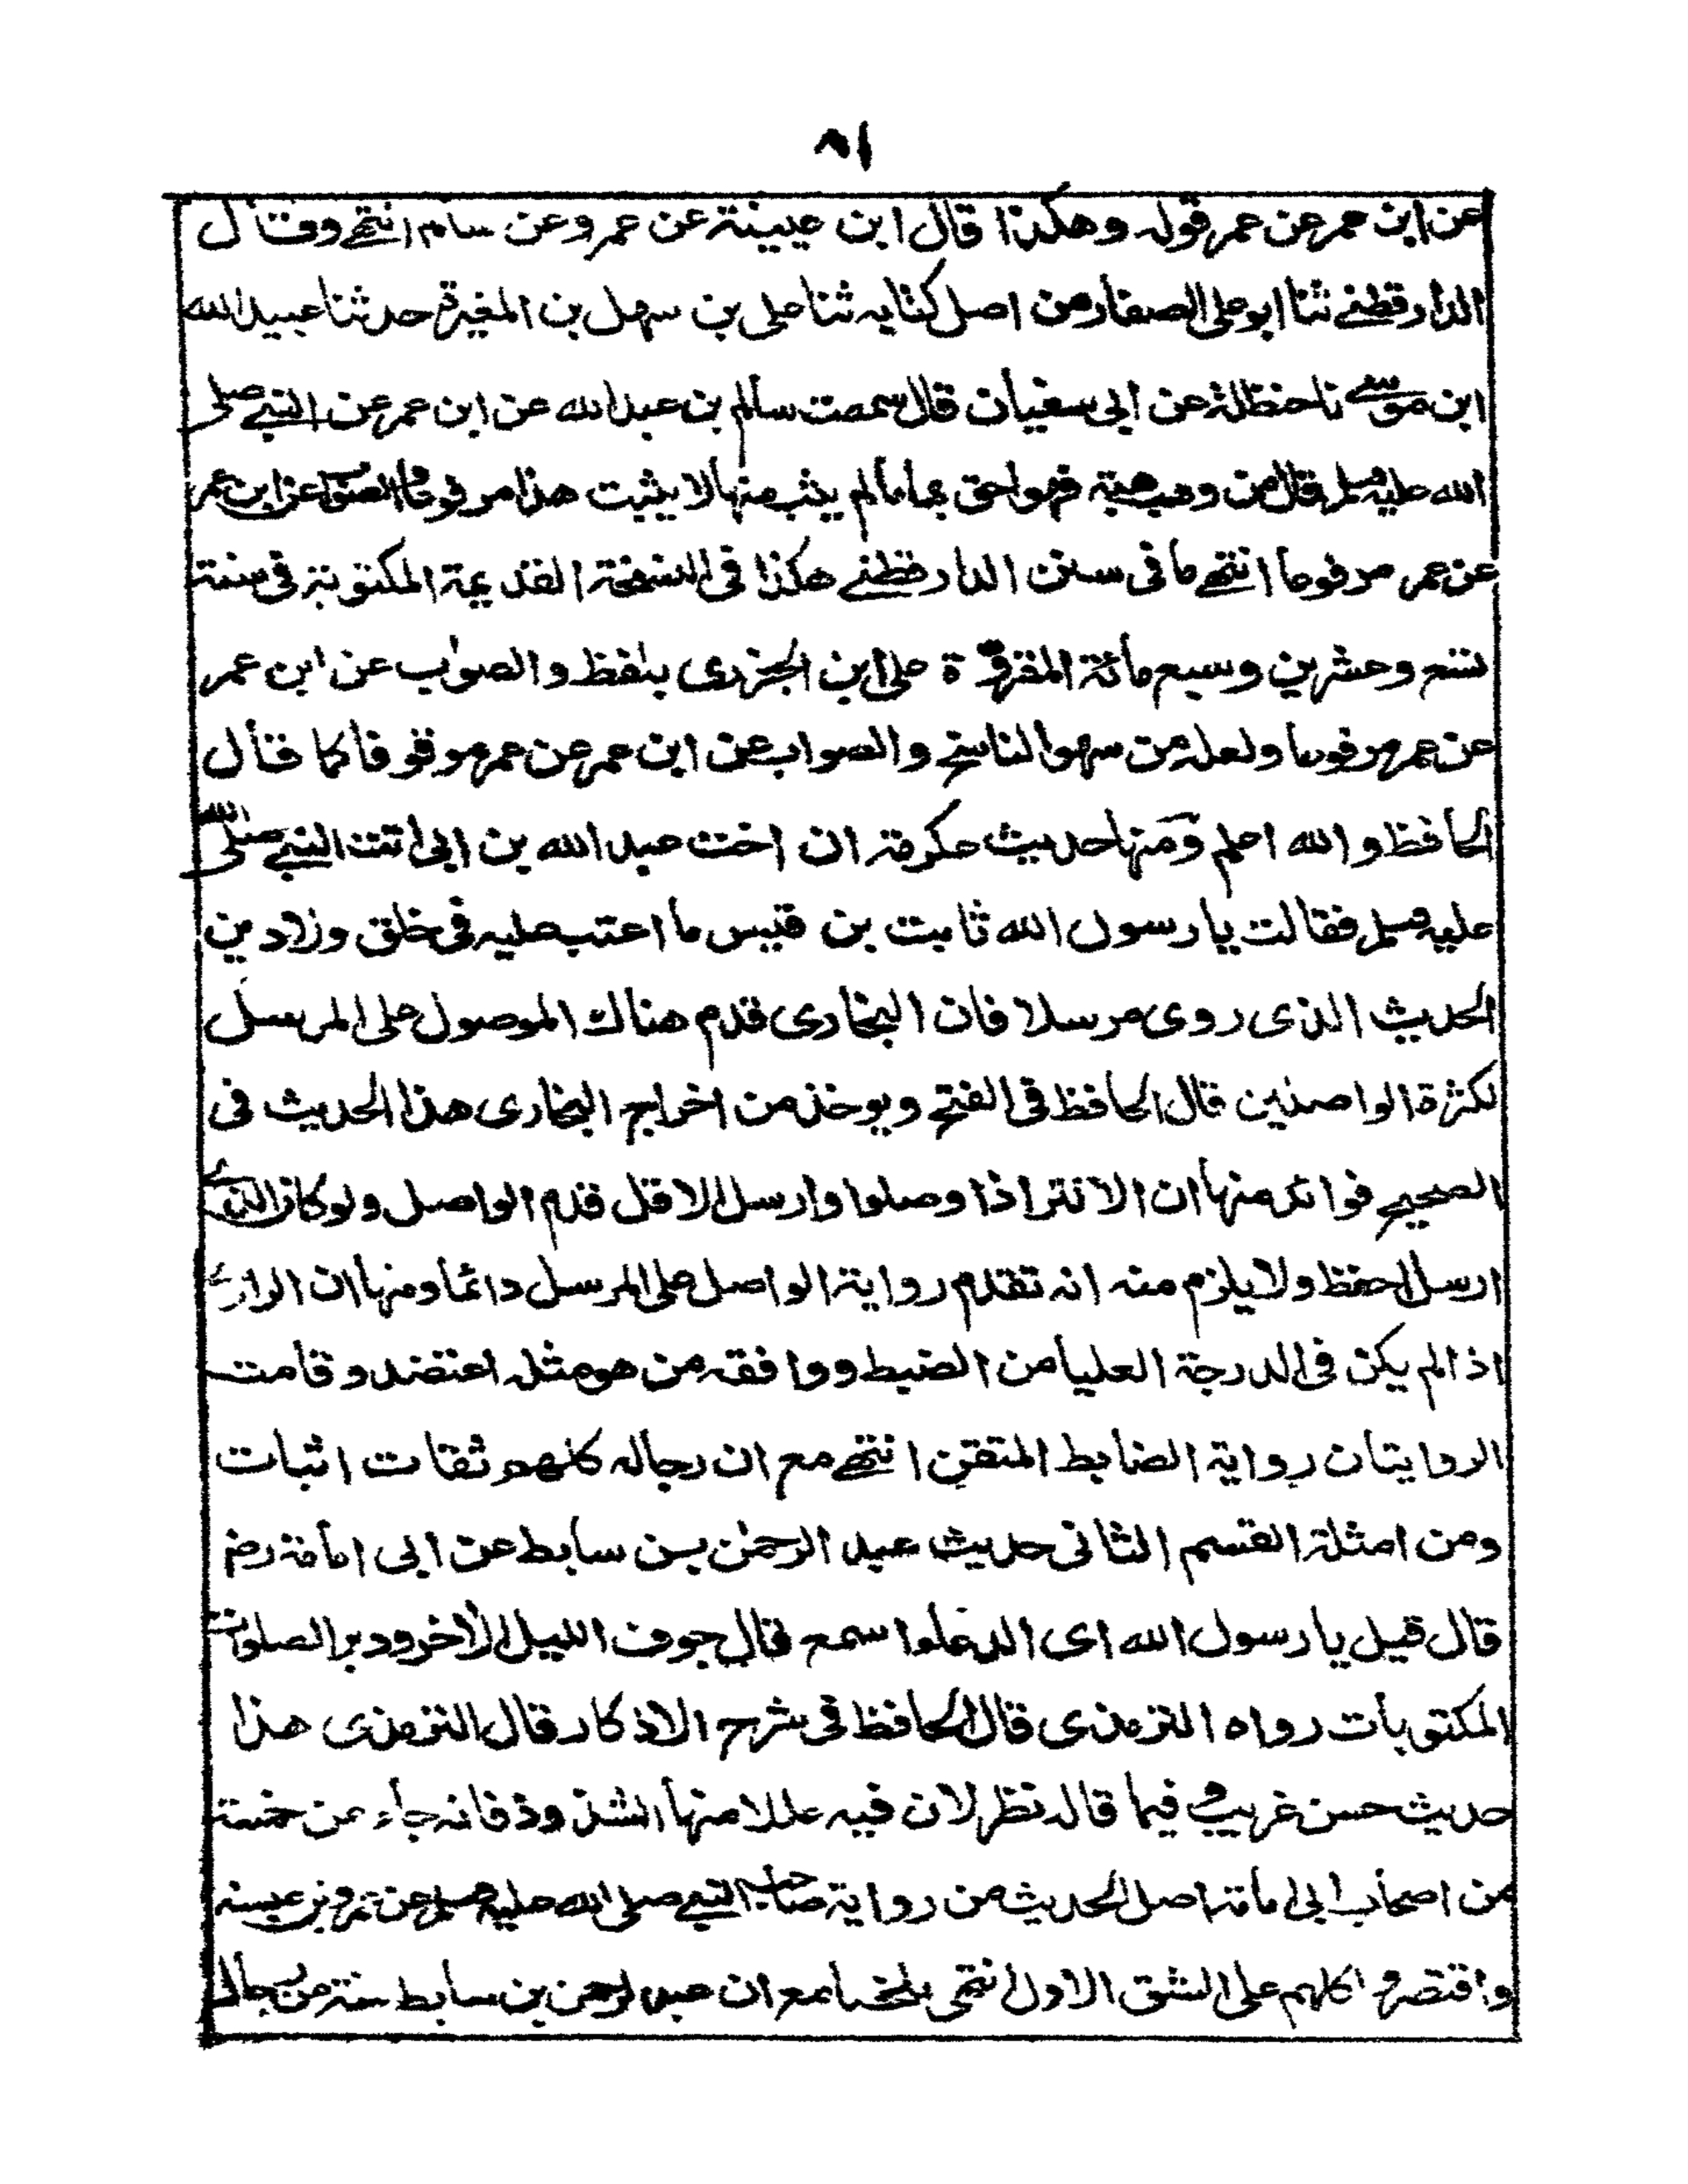 ٨١
عن ابن عمر عن عمر قوله وهكذا قال ابن عيينة عن عمرو عن سالم انتهے وقال
الدارقطنے ثنا ابو على الصفار من اصل كتابه ثنا على بن سهل بن المغيرة حدثنا عبيد الله
ابن موسے نا حنظلة عن ابى سفيان قال سمعت سالم بن عبد الله عن ابن عمر عن النبے صلى
الله عليه وسلم قال من وهب هبة فهو احق بها مالم يثب منها لا يثبت هذا مرفوعا والصواب عن ابن عمر
عن عمر مرفوعا انتهے ما فى سنن الدارقطنے هكذا فى النسخة القديمة المكتوبة فى سنة
تسع وعشرين وسبع مائة المقروّة على ابن الجزرى بلفظ والصواب عن ابن عمر
عن عمر مرفوعا ولعله من سهو الناسخ والصواب عن ابن عمر عن عمر موقوفا كما قال
الحافظ والله اعلم ومنها حديث عكرمة ان اخت عبد الله بن ابى اتت النبے صلى الله
عليه وسلم فقالت يا رسول الله ثابت بن قيس ما اعتب عليه فى خلق ولا دين
الحديث الذى روى مرسلا فان البخارى قدم هناك الموصول على المرسل
لكثرة الواصلين قال الحافظ فى الفتح ويوخذ من اخراج البخارى هذا الحديث فى
الصحيح فوائد منها ان الاكثر اذا وصلوا وارسل الاقل قدم الواصل ولو كان الذے
ارسل احفظ ولا يلزم منه انه تقدم رواية الواصل على المرسل دائما ومنها ان الراوے
اذا لم يكن فى الدرجة العليا من الضبط ووافقه من هو مثله اعتضد وقامت
الروايتان رواية الضابط المتقن انتهے مع ان رجاله كلهم ثقات اثبات
ومن امثلة القسم الثانى حديث عبد الرحمٰن بن سابط عن ابى امامة رضـ
قال قيل يا رسول الله اى الدعاء اسمع قال جوف الليل الآخر ودبر الصلوات
المكتوبات رواه الترمذى قال الحافظ فى شرح الاذكار قال الترمذى هذا
حديث حسن غريب وفيما قاله نظر لان فيه عللا منها الشذوذ فانه جاء عن خمسة
من اصحاب ابى امامة اصل الحديث من رواية صاحب النبے صلى الله عليه وسلم عن عمرو بن عبسة
واقتصروا كلهم على الشق الاول انتهى ملخصا مع ان عبد الرحمن بن سابط ستة من رجال